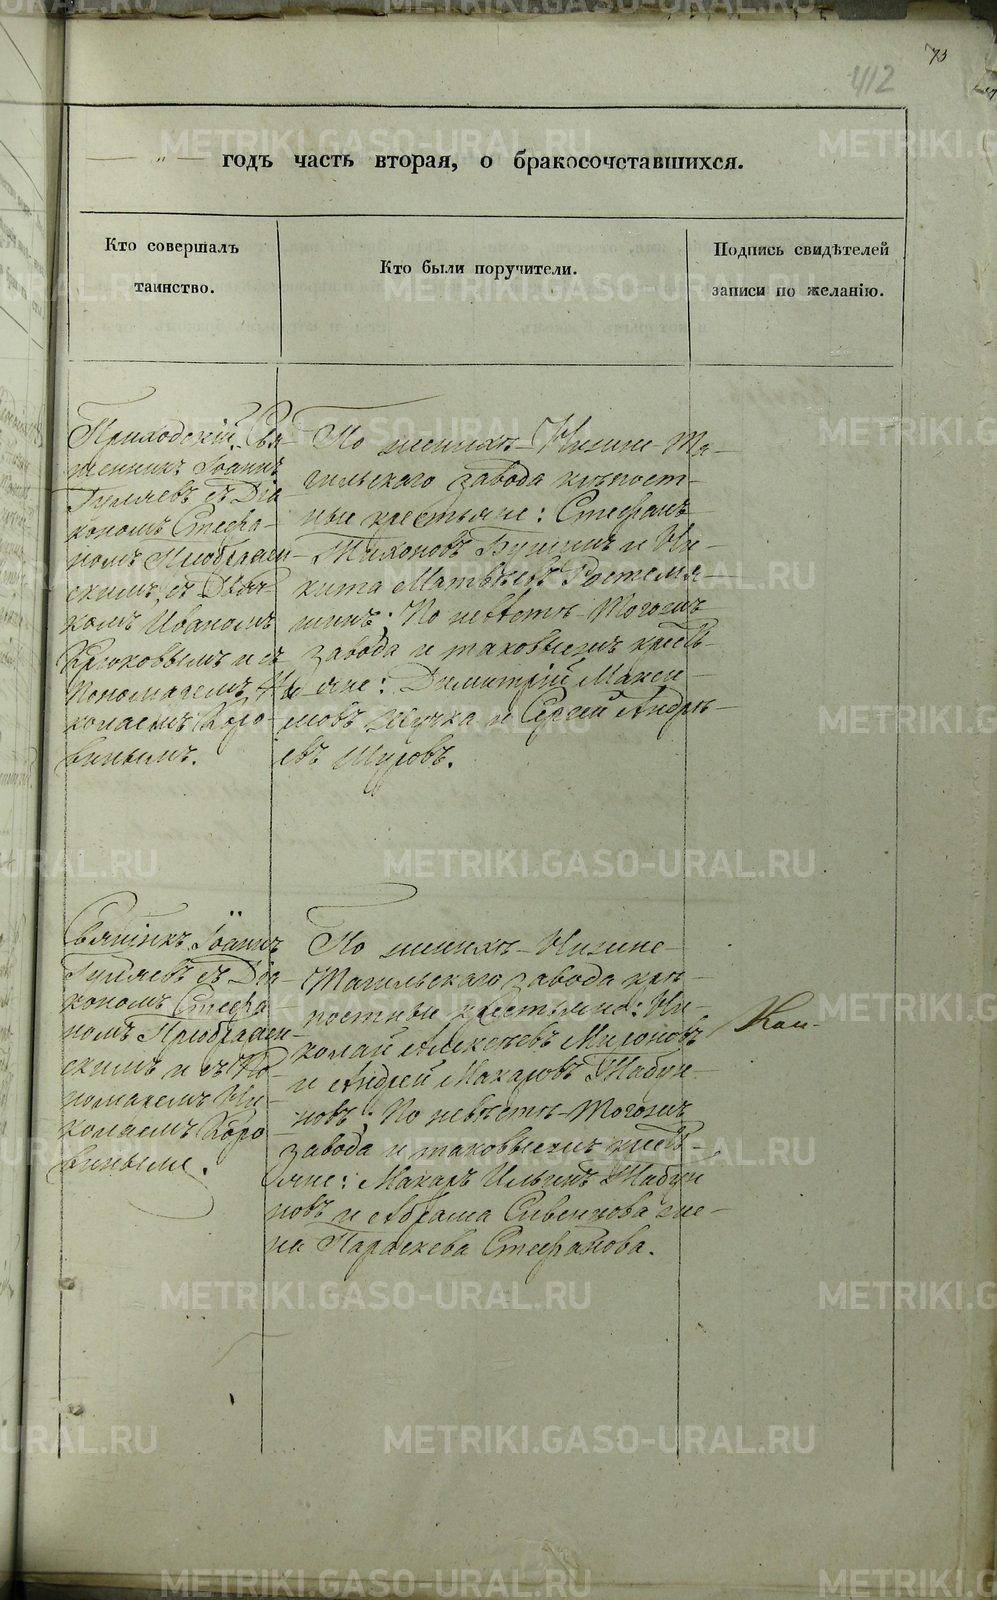 73
412
годъ часть вторая, о бракосочетавшихся.
Кто совершалъ
таинство.
Кто были поручители.
Подпись свидѣтелей
записи по желанію.
Приходскій Свя-
щенникъ Іоаннъ
Гуляевъ съ Діа
кономъ Стефа-
номъ Преображен-
скимъ, съ Дьяч-
комъ Иваномъ
Крюковымъ и съ
Пономаремъ Ни
колаемъ Коро-
винымъ.
По женихѣ Нижне Та-
гильскаго завода крѣпост-
ные крестьяне: Стефанъ
Тихоновъ и Ни-
кита Матвѣевъ
По невѣстѣ Тогожъ
завода и таковыежъ кресть-
яне: Димитрій Макси-
мовъ и Сергей Андрѣ-
евъ Шуровъ.
Священикъ Іоаннъ
Гуляевъ съ Діа-
кономъ Стефа
номъ Преображен-
скимъ и съ По-
номаремъ Ни-
колаемъ Коро
винымъ.
По женихѣ Нижне-
Тагильскаго завода крѣ-
постные крестьяне: Ни-
колай Алексѣевъ Мироновъ
и Андрей Макаровъ Шабу-
новъ; По невѣстѣ Тогожъ
завода и таковыежъ кресть-
яне: Макаръ Ильинъ
и Абрама жена
Параскева Стефанова.
METRIKI.GASO-URAL.RU